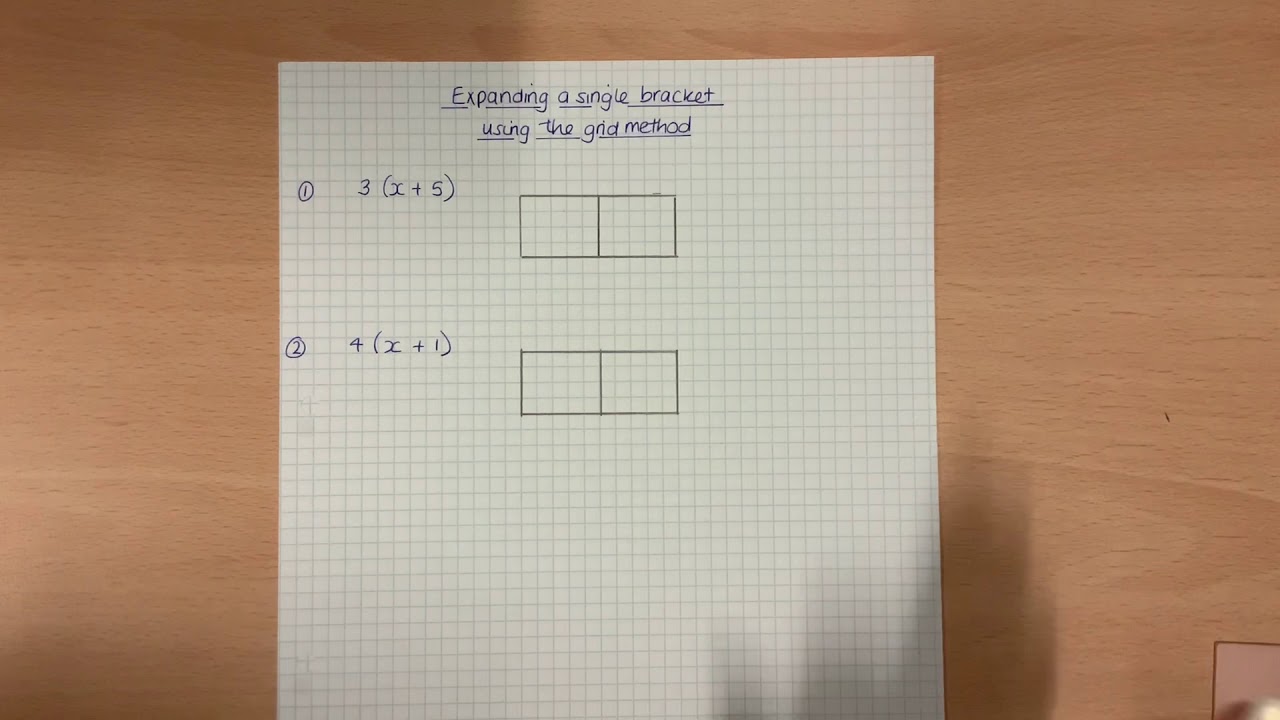 Expanding a single bracket
using the grid method
① 3 (x + 5)
② 4 (x + 1)